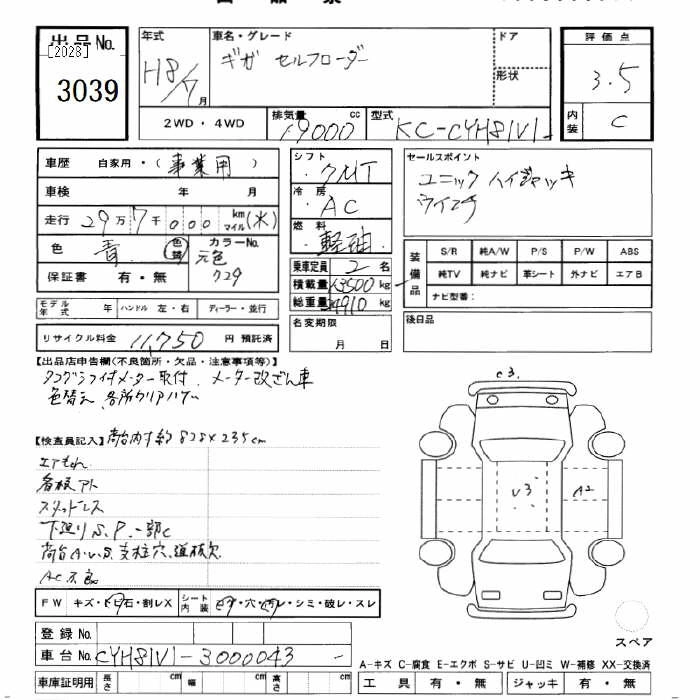 出品No.
[2028]
3039
年式
H8/7月
車名・グレード
ギガ セルフローダー
ドア
形状
評価点
3.5
内装
C
2WD・4WD
排気量 19000 cc
型式 KC-CYH81V1
車歴 自家用・(事業用)
車検 年 月
走行 29万7千000 km マイル (メ)
色 青 色替
カラーNo.
元色 729
保証書 有・無
モデル年式 年 ハンドル 左・右 ディーラー・並行
リサイクル料金 11,750 円 預託済
シフト
7MT
冷房
AC
燃料
軽油
乗車定員 2 名
積載量 13500 kg
総重量 24910 kg
名変期限
月 日
セールスポイント
ユニック ハイジャッキ
ウインチ
装備品
S/R 純A/W P/S P/W ABS
純TV 純ナビ 革シート 外ナビ エアB
ナビ型番:
後日品
【出品店申告欄(不良箇所・欠品・注意事項等)】
タコグラフ付メーター取付、メーター改ざん車
色替え、各所クリアハゲ
【検査員記入】荷台内寸約828×235cm
エアもれ
看板アト
スタッドレス
下廻りS.P.一部C
荷台A.U.S.支柱穴.道板欠
AC不良
FW キズ・ヒ石・割レX
シート内装 コゲ・穴・スレ・シミ・破レ・スレ
登録No.
車台No. CYH81V1-3000043
車庫証明用 長さ cm 幅 cm 高さ cm
C3.
V3
A2
スペア
A-キズ C-腐食 E-エクボ S-サビ U-凹ミ W-補修 XX-交換済
工具 有・無 ジャッキ 有・無